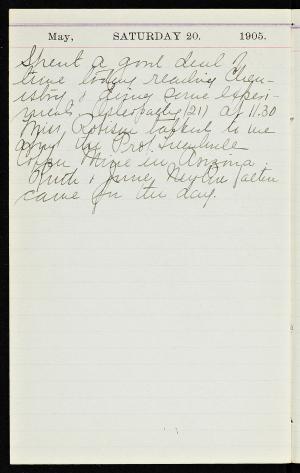 May, SATURDAY 20. 1905.
Spent a good deal of
time today reading Chem-
istry & doing some experi-
ments. Osteopathy (21) at 11.30
Miss Robison talked to me
about the Prof.
Copper Mine in Arizona.
Ruth & June
came for the day.